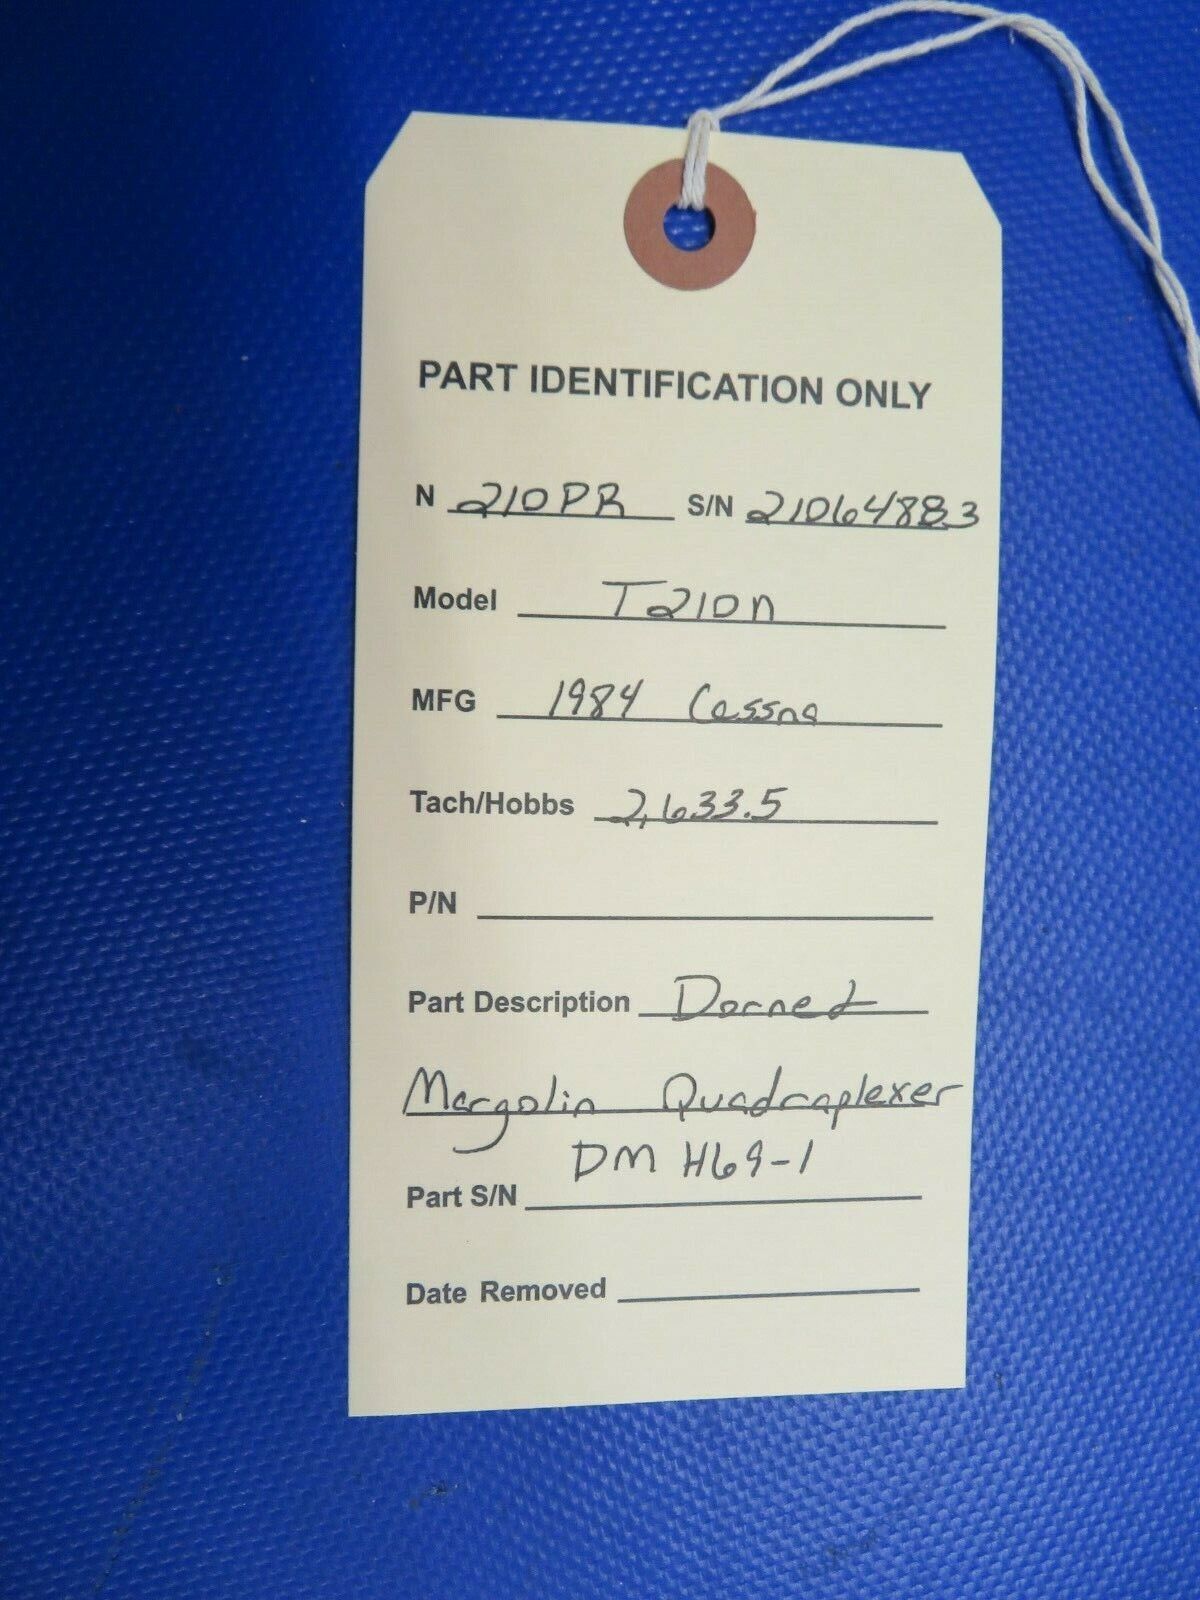 PART IDENTIFICATION ONLY
N 210PR S/N 21064883
Model T210n
MFG 1984 Cessna
Tach/Hobbs 2,633.5
P/N
Part Description Dorne &
Margolin Quadraplexer
DM H69-1
Part S/N
Date Removed